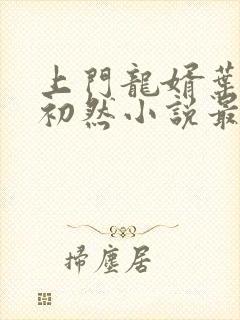 上門龍婿葉
初然小説最
掃塵居